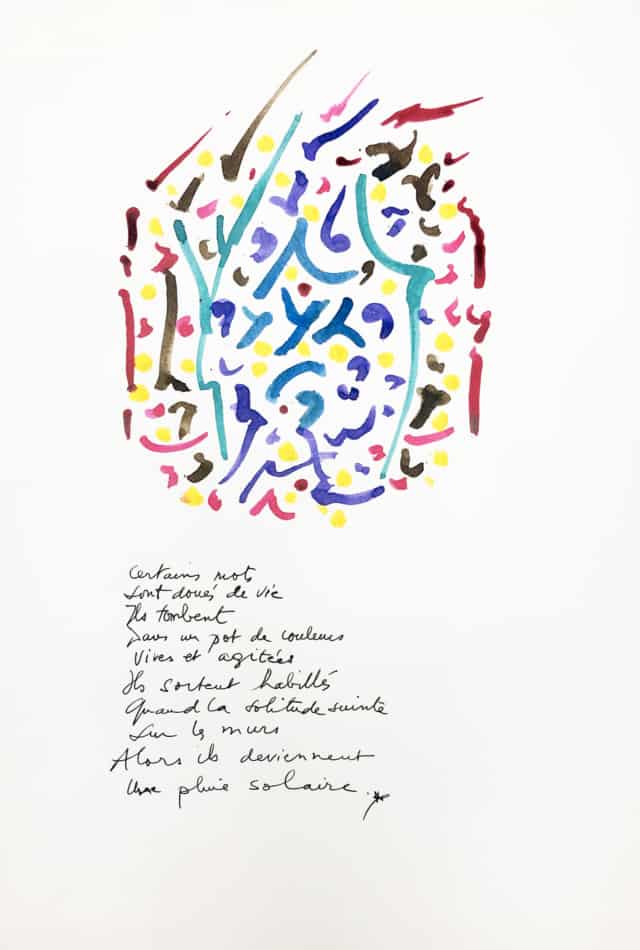 Certains mots
sont doués de vie
Ils tombent
Dans un pot de couleurs
Vives et agitées
Ils sortent habillés
Quand la solitude suinte
Sur les murs
Alors ils deviennent
Une pluie solaire.